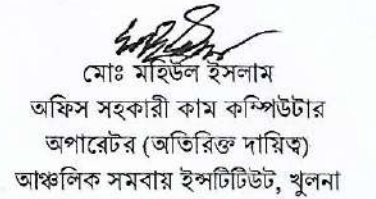 মোঃ মহিউল ইসলাম
অফিস সহকারী কাম কম্পিউটার
অপারেটর (অতিরিক্ত দায়িত্ব)
আঞ্চলিক সমবায় ইন্সটিটিউট, খুলনা